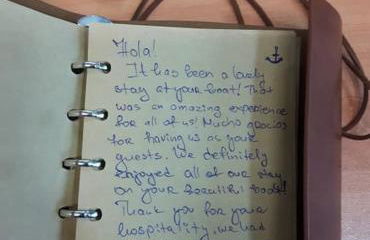 Hola!
It has been a lovely
stay at your boat! That
was an amazing experience
for all of us! Mucho gracias
for having us as your
guests. We definitely
enjoyed all of our stay
on your beautiful boat!
Thank you for your
hospitality, we had